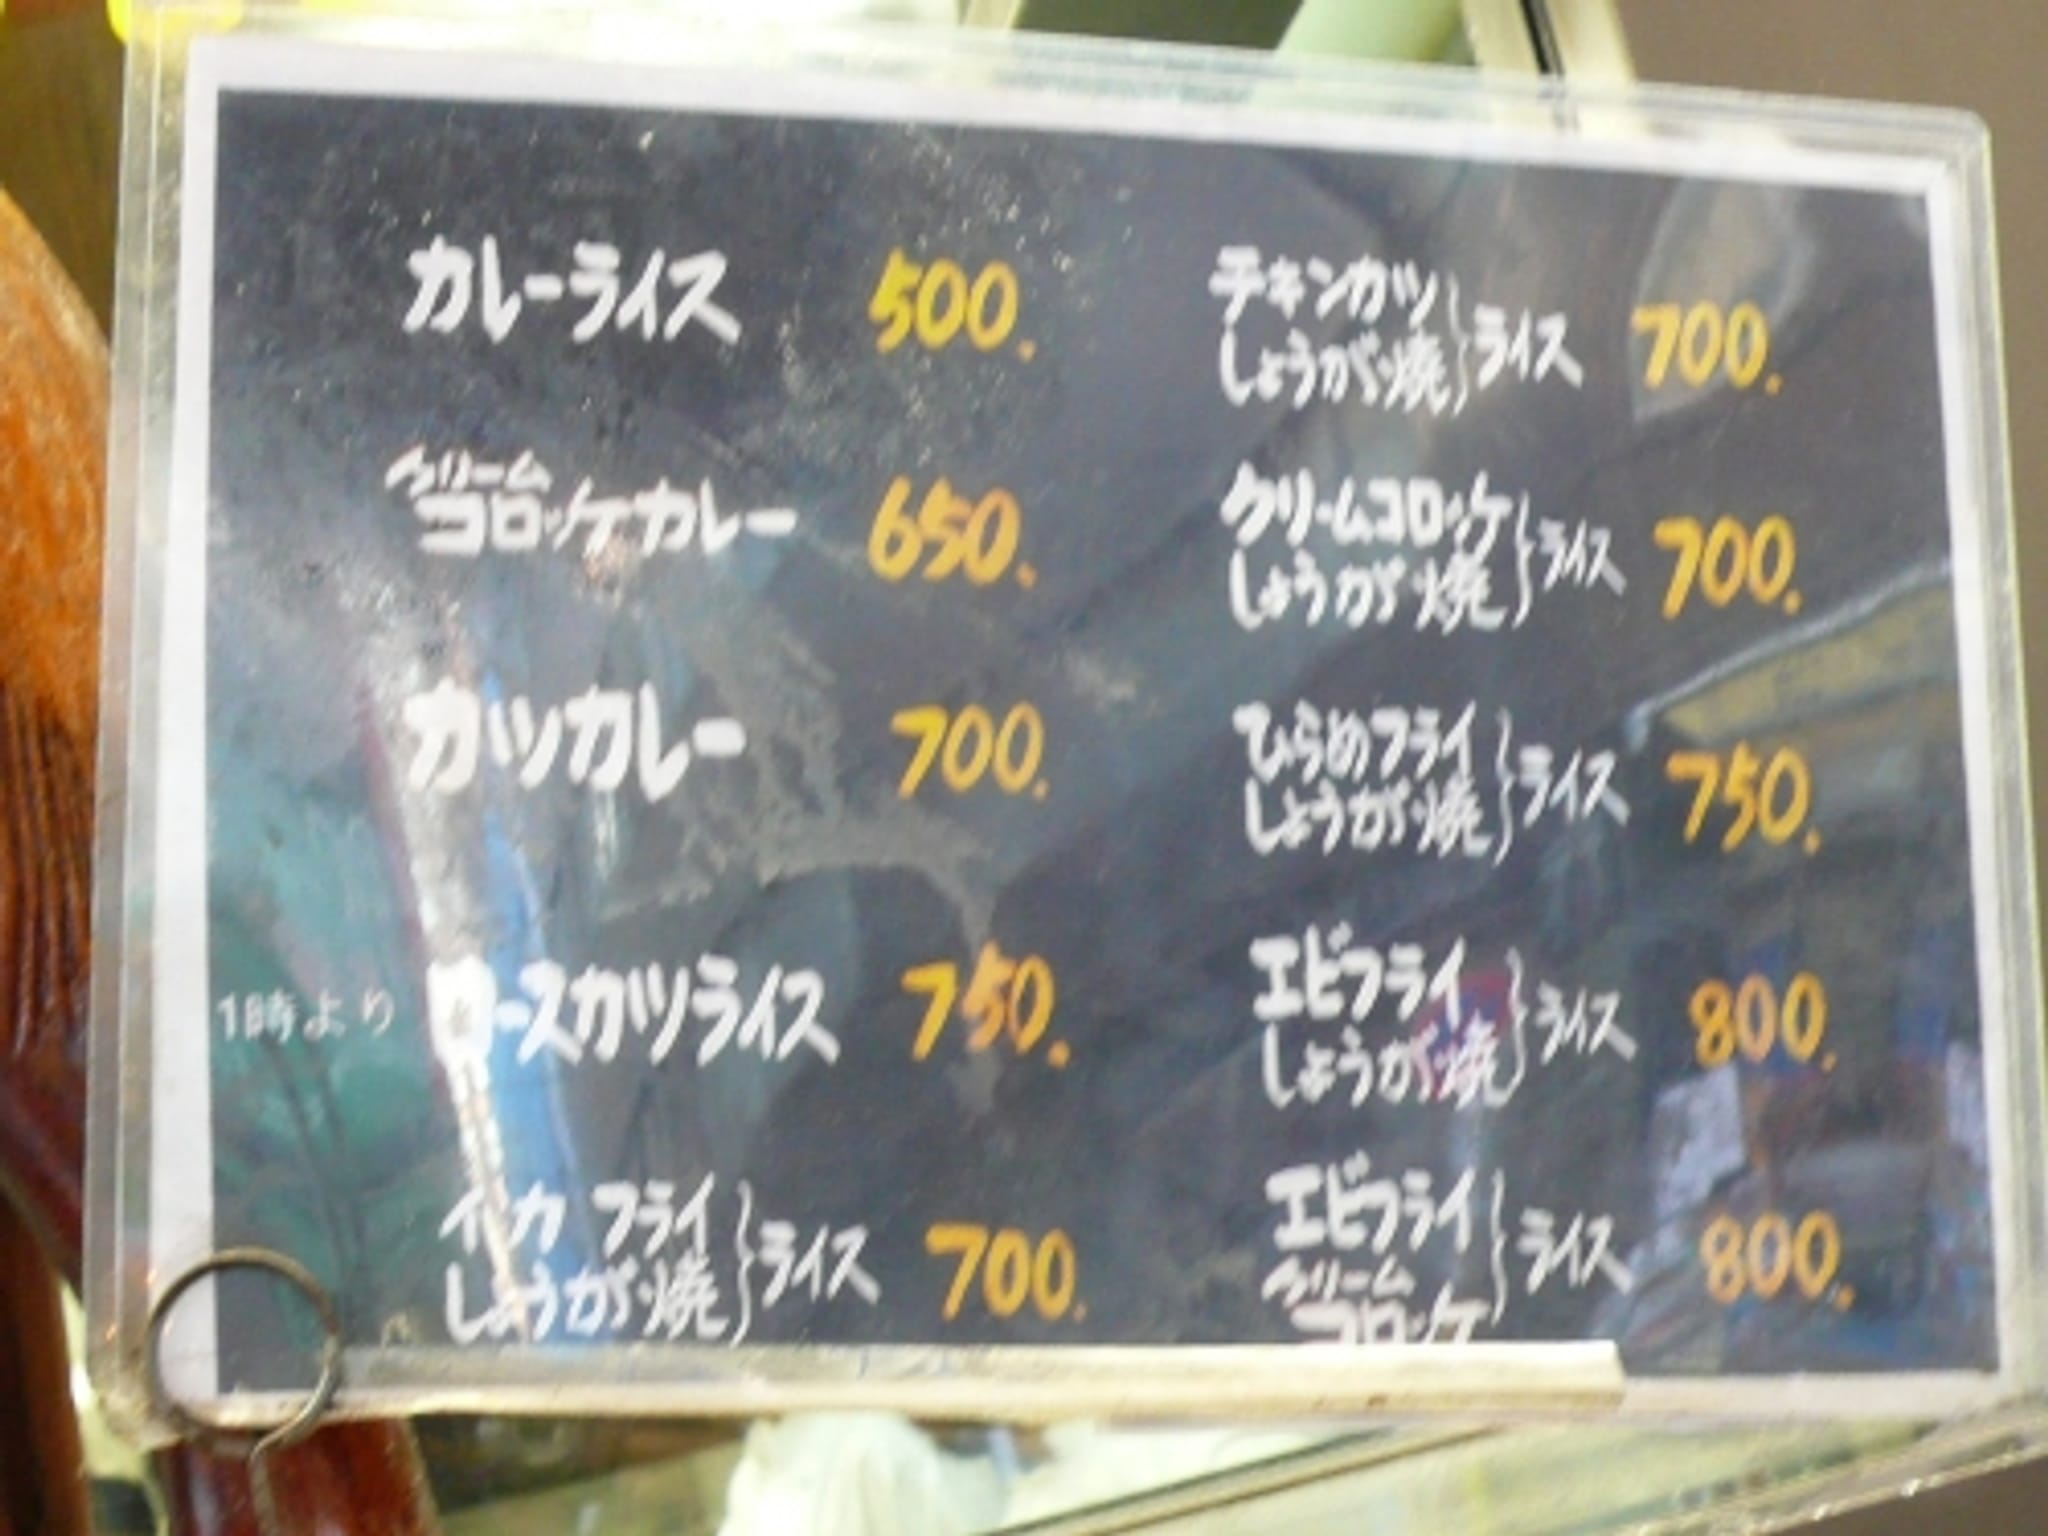 カレーライス 500.
クリーム
コロッケカレー 650.
カツカレー 700.
1時より ロースカツライス 750.
イカフライ
しょうが焼 } ライス 700.
チキンカツ
しょうが焼 } ライス 700.
クリームコロッケ
しょうが焼 } ライス 700.
ひらめフライ
しょうが焼 } ライス 750.
エビフライ
しょうが焼 } ライス 800.
エビフライ
クリーム
コロッケ } ライス 800.